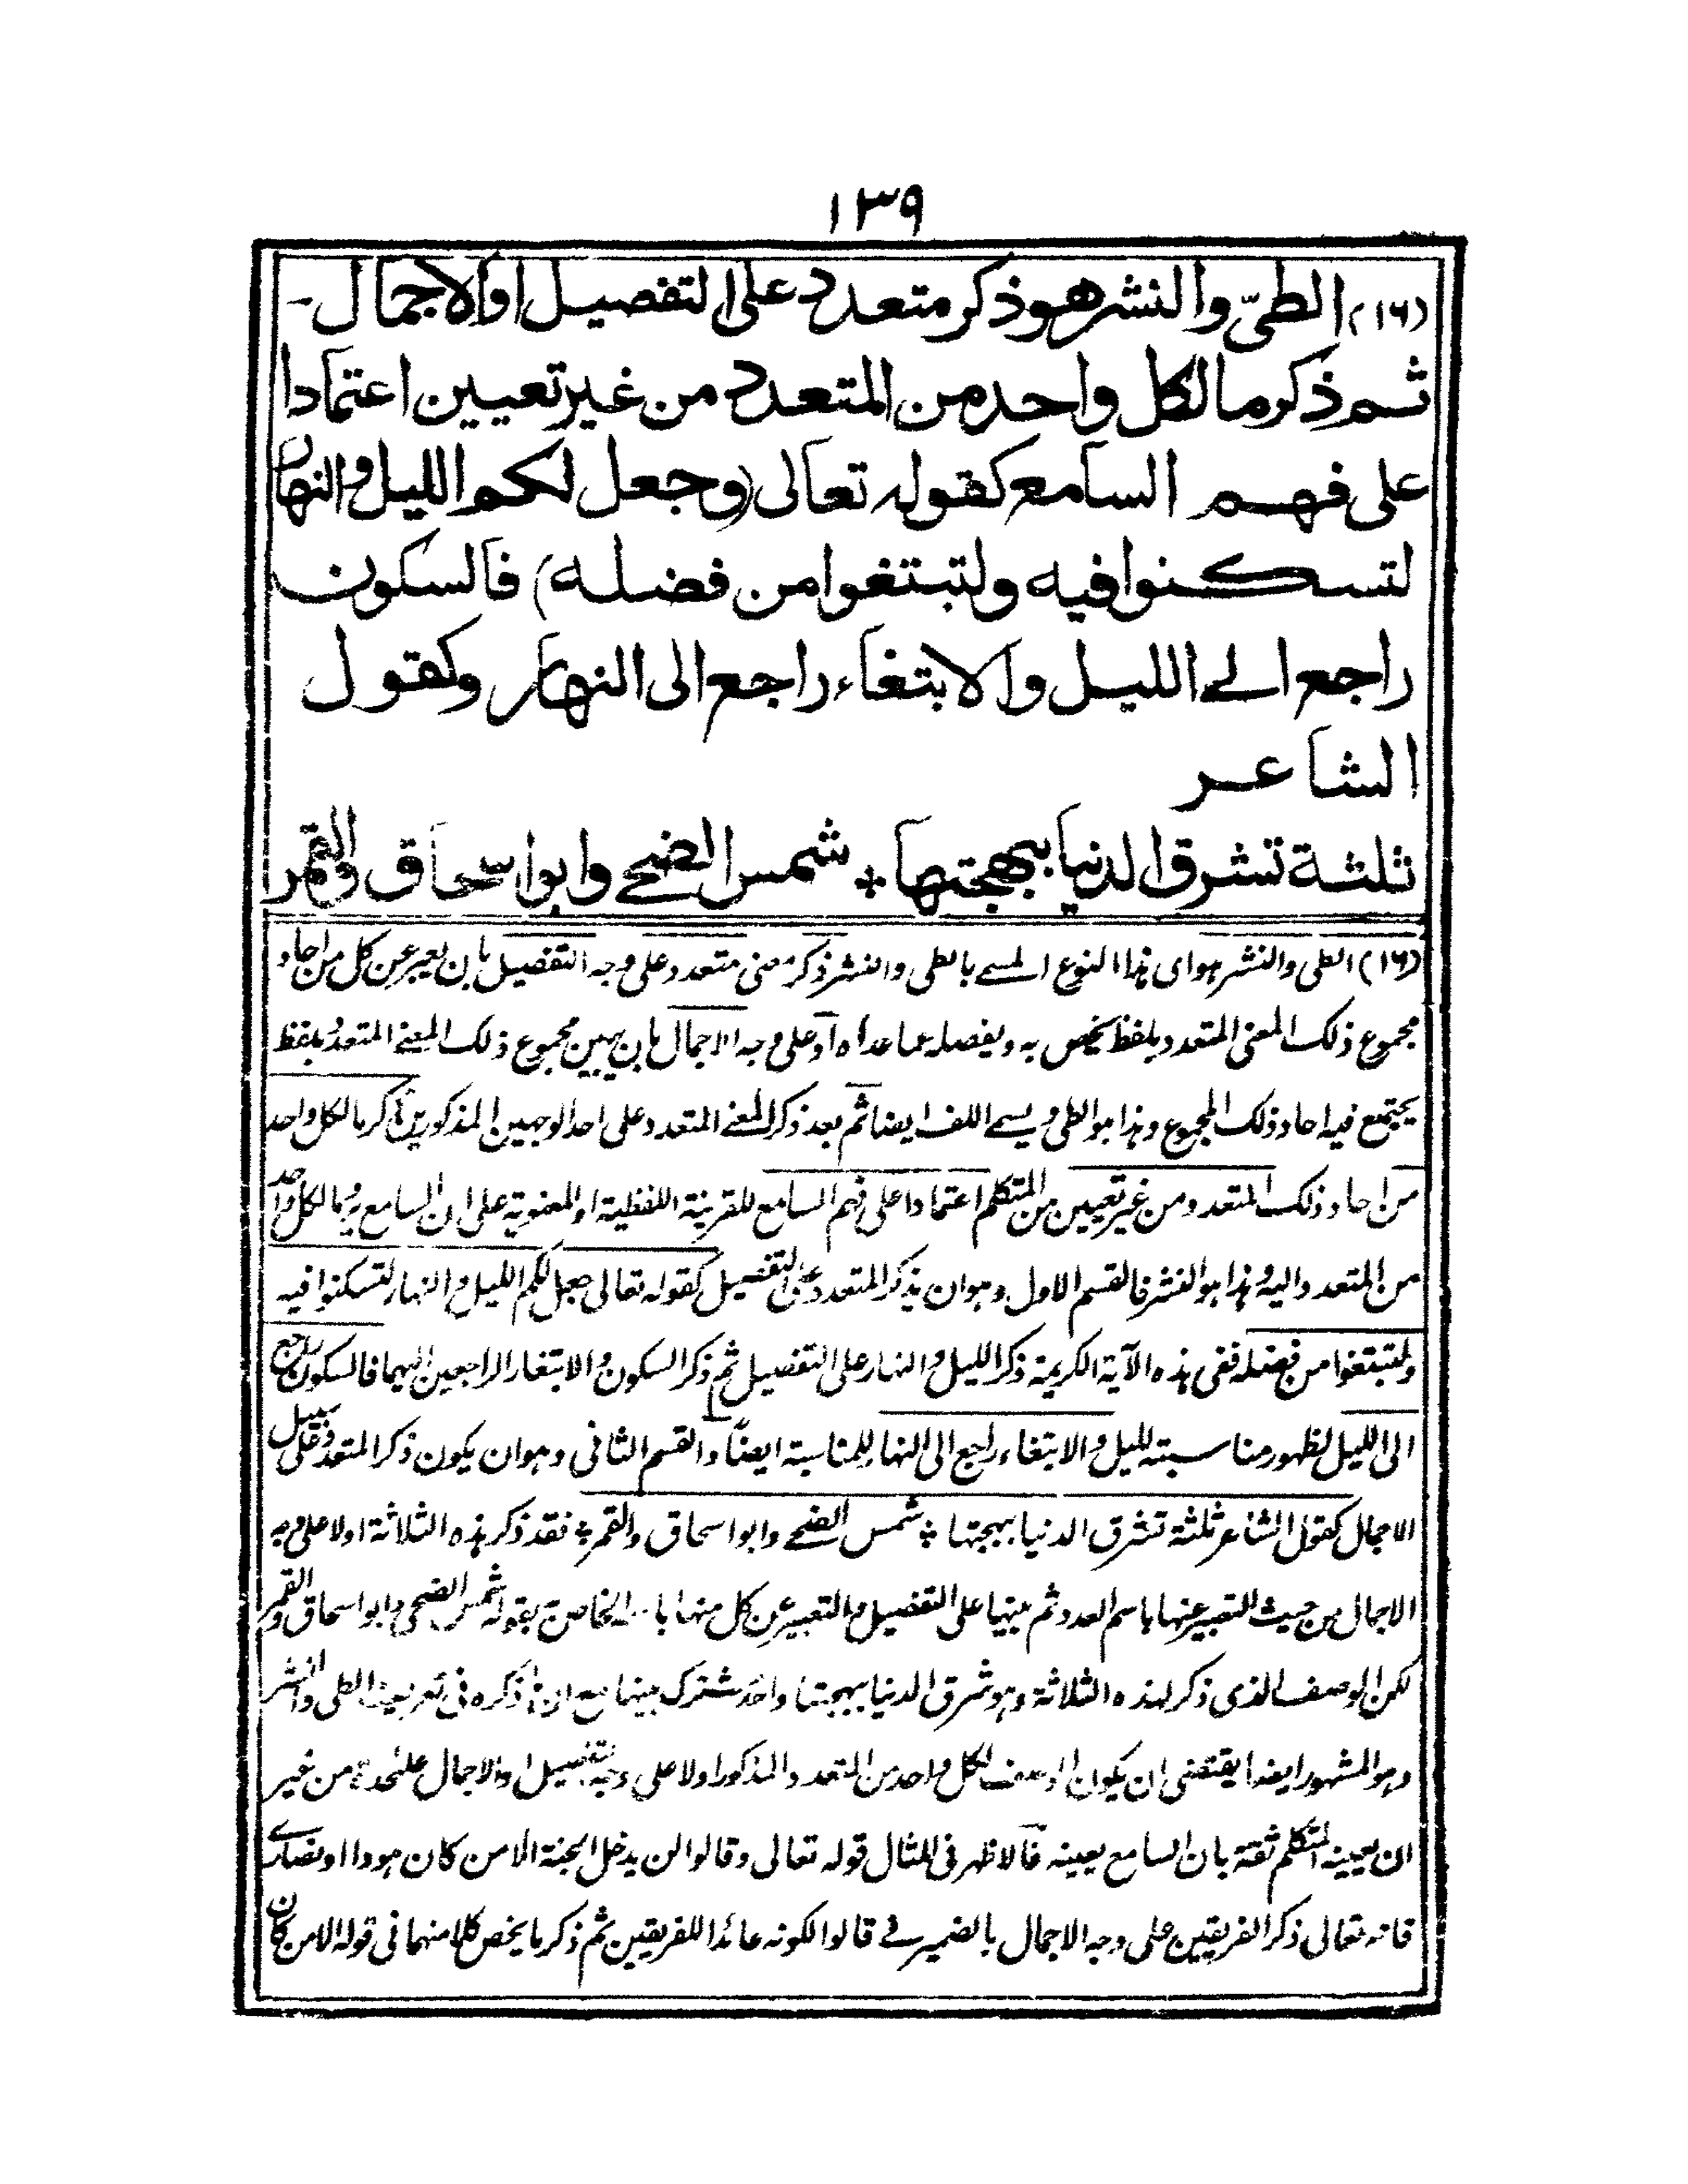 ١٣٩
(١٦) الطيّ والنشر هو ذكر متعدد على التفصيل او الاجمال -
ثم ذكر ما لكل واحد من المتعدد من غير تعيين اعتمادا
على فهم السامع كقوله تعالى (وجعل لكم الليل والنهار
لتسكنوا فيه ولتبتغوا من فضله) فالسكون
راجع الے الليل والابتغاء راجع الى النهار وكقول
الشاعر
ثلثة تشرق الدنيا ببهجتها ÷ شمس الضحے وابو اسحاق والقمر
(١٦) الطي والنشر هو اى هذا النوع المسمے بالطى والنشر ذكر معنى متعدد على وجه التفصيل بان يعبر عن كل من احاد
مجموع ذلك المعنى المتعدد بلفظ يخص به ويفصله عما عداه او على وجه الاجمال بان يبين مجموع ذلك المعنے المتعدد بلفظ
يجتمع فيه احاد ذلك المجموع وهذا هو الطى ويسمے اللف ايضا ثم بعد ذكر المعنے المتعدد على احد الوجهين المذكورين ذكر ما لكل واحد
من احاد ذلك المتعدد من غير تعيين من المتكلم اعتمادا على فهم السامع للقرينة اللفظية او المعنوية على ان السامع يرد ما لكل واحد
من المتعدد اليه وهذا هو النشر فالقسم الاول وهو ان يذكر المتعدد على التفصيل كقوله تعالى جعل لكم الليل والنهار لتسكنوا فيه
ولتبتغوا من فضله ففى هذه الآية الكريمة ذكر الليل والنهار على التفصيل ثم ذكر السكون والابتغاء الراجعين اليهما فالسكون راجع
الى الليل لظهور مناسبته لليل والابتغاء راجع الى النهار للمناسبة ايضاً والقسم الثانى وهو ان يكون ذكر المتعدد على سبيل
الاجمال كقول الشاعر ثلثة تشرق الدنيا ببهجتها ÷ شمس الضحے وابو اسحاق والقمر ÷ فقد ذكر هذه الثلاثة اولا على وجه
الاجمال من حيث التعبير عنها باسم العدد ثم بينها على التفصيل والتعبير عن كل منها الخاصة بقوله شمس الضحى وابو اسحاق والقمر
لكن الوصف الذى ذكر لهذه الثلاثة وهو تشرق الدنيا ببهجتها واحد مشترك بينها مع ان ما ذكره فى تعريف الطى والنشر
وهو المشهور ايضا يقتضى ان يكون الوصف لكل واحد من المتعدد المذكور اولا على وجه التفصيل او الاجمال علىحدة من غير
ان يعينه المتكلم ثقة بان السامع يعينه فالاظهر فى المثال قوله تعالى وقالوا لن يدخل الجنة الا من كان هودا او نصارے
فانه تعالى ذكر الفريقين على وجه الاجمال بالضمير فے قالوا لكونه عائدا للفريقين ثم ذكر ما يخص كلا منهما فى قوله الا من كان